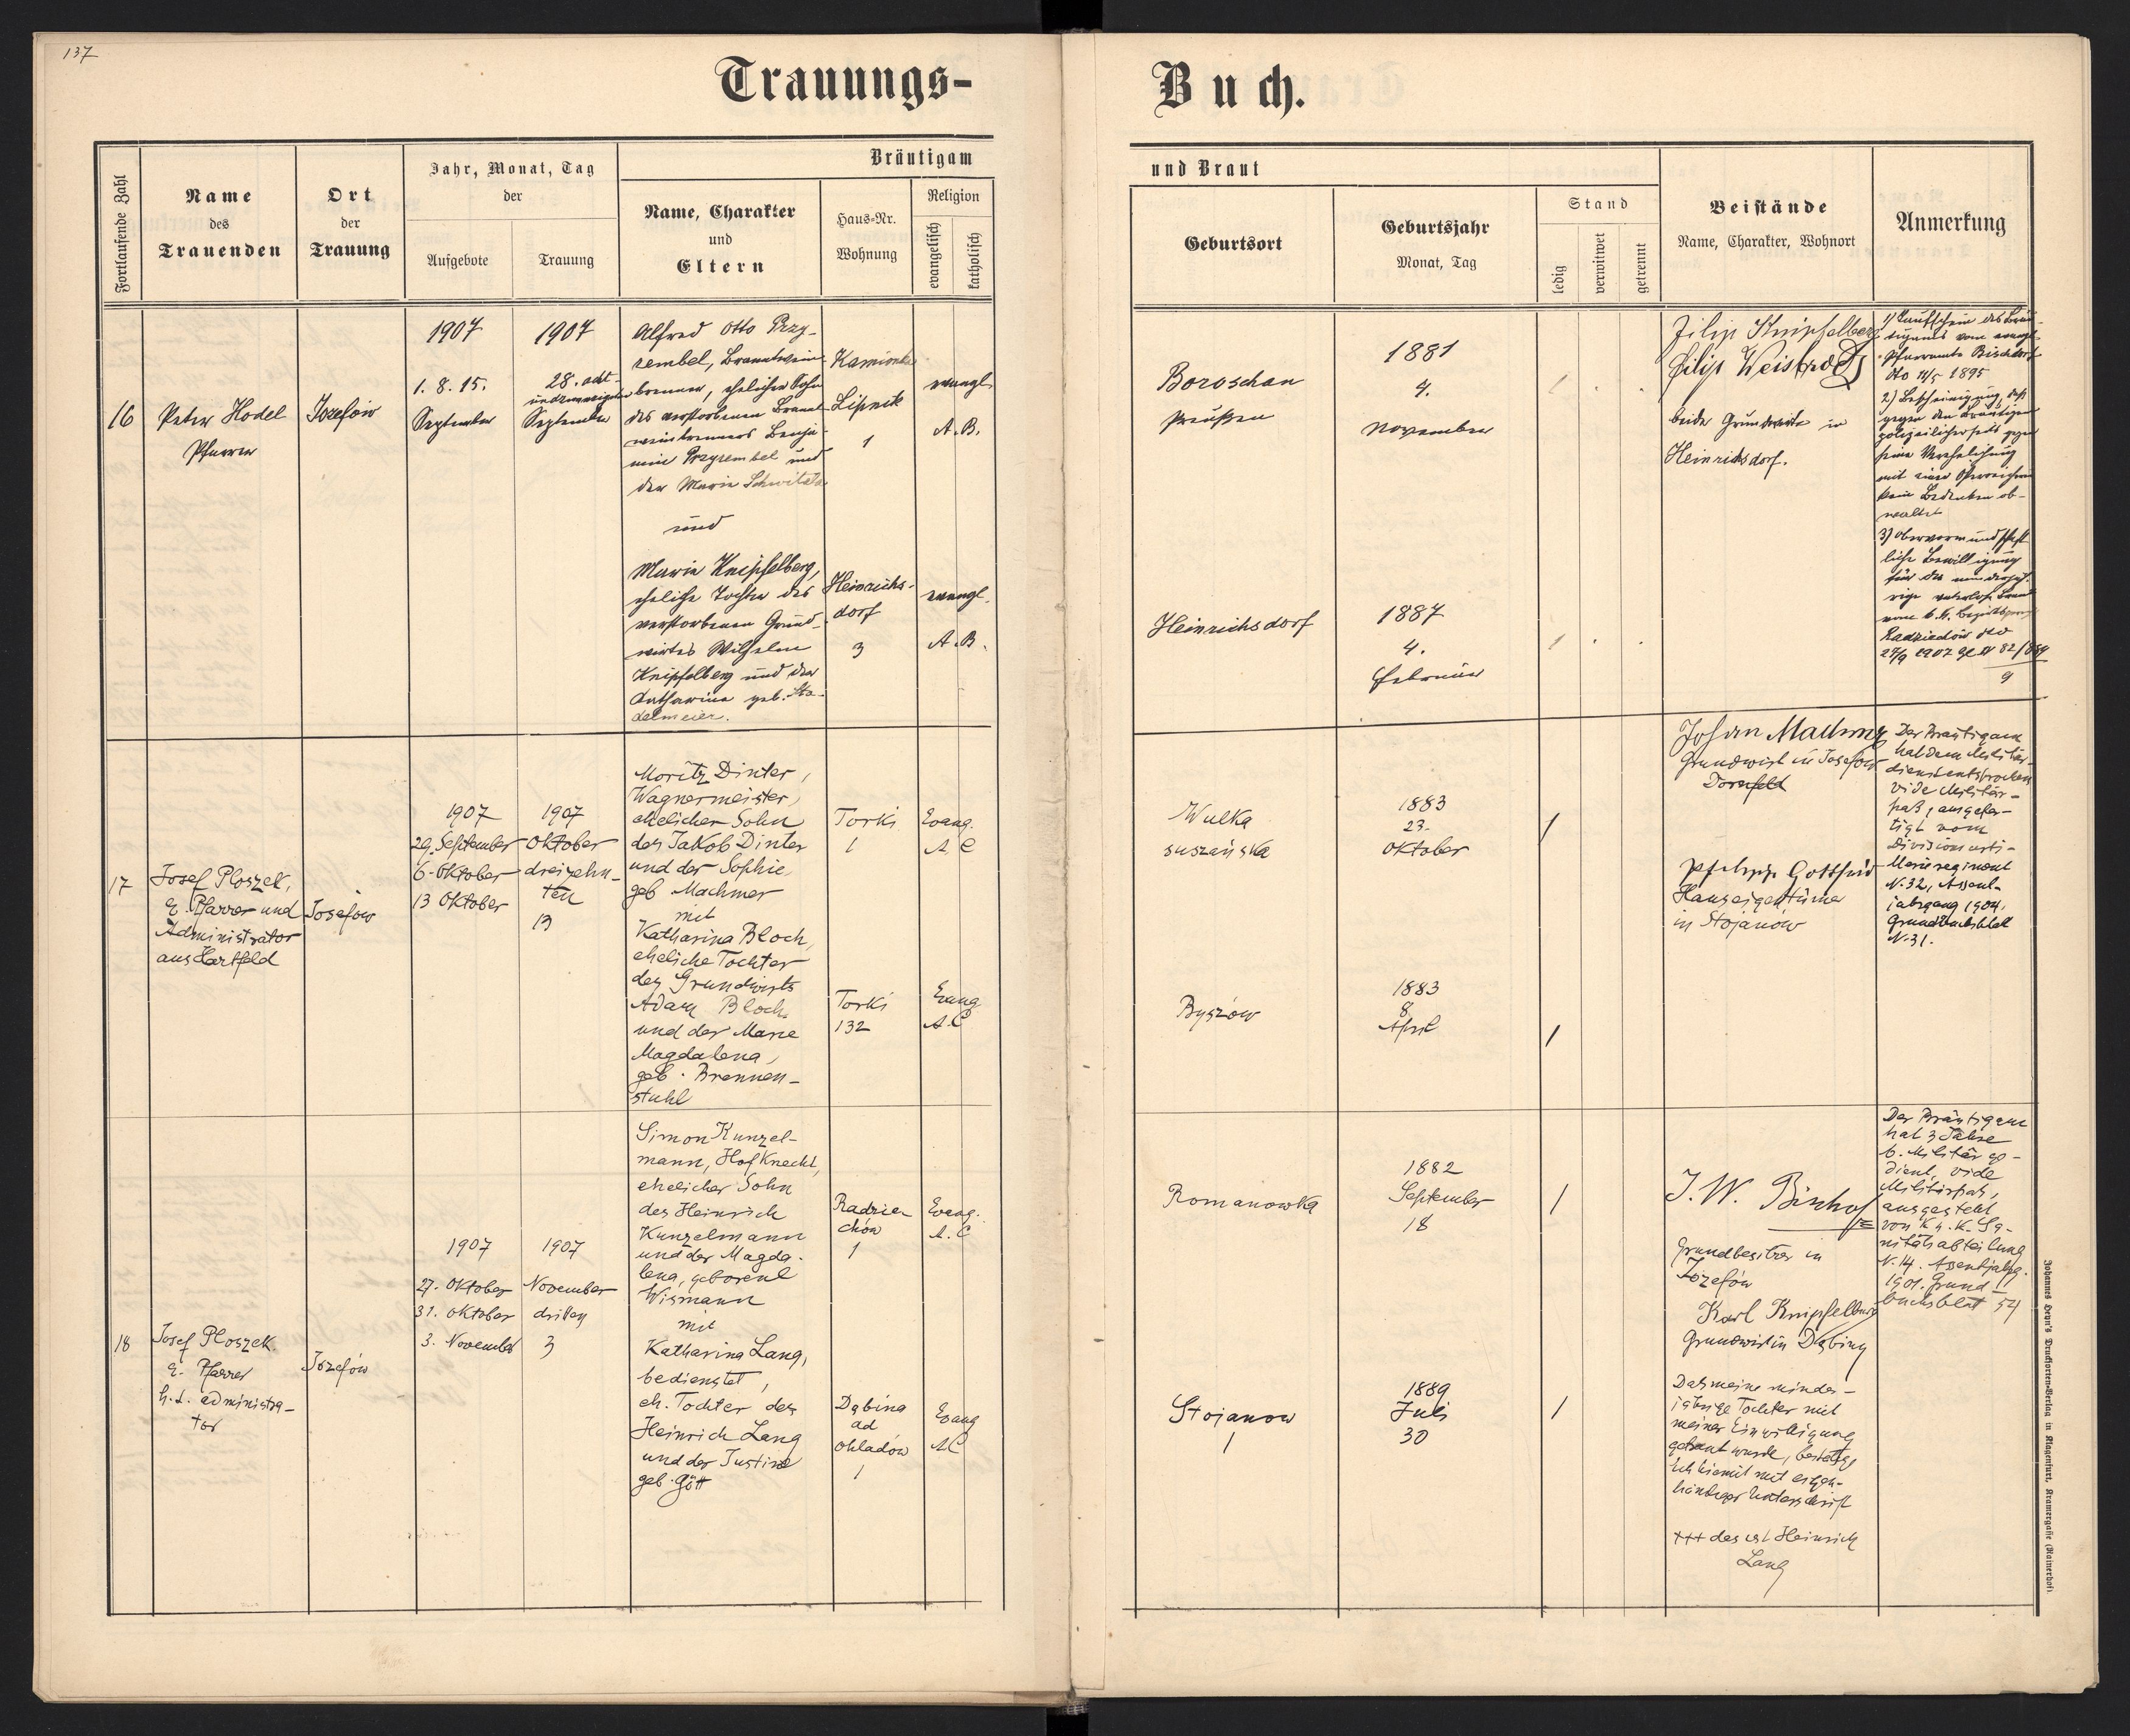 137
Trauungs-
Buch.
Fortlaufende Zahl
Name
des
Trauenden
Ort
der
Trauung
Jahr, Monat, Tag
der
Aufgebote
Trauung
Bräutigam
Name, Charakter
und
Eltern
Haus-Nr.
Wohnung
Religion
evangelisch
katholisch
und Braut
Geburtsort
Geburtsjahr
Monat, Tag
Stand
ledig
verwitwet
getrennt
Beistände
Name, Charakter, Wohnort
Anmerkung
16
Peter Hodel
Pfarrer
Josefow
1907
1. 8. 15.
September
1907
28. acht-
undzwanzigsten
September
Alfred Otto Przy-
rembel, Branntwein-
brenner, ehelicher Sohn
des verstorbenen Brannt-
weinbrenners Benja-
min Przyrembel und
der Maria
und
Maria Knipfelberg,
eheliche Tochter des
verstorbenen Grund-
wirtes Wilhelm
Knipfelberg und der
Katharina geb. Sta-
delmeier.
Kamionka
Lipnik
1
evangl.
A. B.
Heinrichs-
dorf
3
evangl.
A. B.
Boroschau
Preußen
1881
4.
November
Heinrichsdorf
1887
4.
Februar
Filip Knipfelberg
Filip
beide Grundwirte in
Heinrichsdorf.
1) Taufschein des Bräu-
tigams vom evangl.
Pfarramte Bischdorf
dto 14/5 1895
2) Bescheinigung, daß
gegen den Bräutigam
polizeilicherseits gegen
seine Verehelichung
mit einer Österreicherin
kein Bedenken ob-
waltet
3) Obervormundschaft-
liche Bewilligung
für die minderjäh-
rige vaterlose Braut
vom k. k. Bezirksgericht
Radziechów dto
27/9 1907
9
17
Josef Ploszek,
e. Pfarrer und
Administrator
aus Hartfeld
Josefow
1907
29. September
6. Oktober
13 Oktober
1907
Oktober
dreizehn-
ten
13
Moritz Dinter,
Wagnermeister,
ehelicher Sohn
des Jakob Dinter
und der Sophie,
geb Machmer
mit
Katharina Bloch,
eheliche Tochter
des Grundwirts
Adam Bloch
und der Marie
Magdalena,
geb. Brennen-
stuhl
Torki
1
Evang.
A. C
Torki
132
Evang
A.C
Wulka
suszańska
1883
23.
Oktober
/
Byszów
1883
8
April
/
Johan Machmer
Grundwirt in Josefow
Dornfeld
Gottfried
Hauseigentümer
in Stojanów
Der Bräutigam
hat dem Militär-
dienst entsprochen
vide Militär-
paß, ausgefer-
tigt vom
Divisionsarti-
llerieregiment
N. 32, Assent-
jahrgang 1904,
Grundbuchsblatt
N. 31.
18
Josef Ploszek
e. Pfarrer
h. t. administra-
tor
Józefów
1907
27. Oktober
31. Oktober
3. November
1907
November
dritten
3
Simon Kunzel-
mann, Hofknecht,
ehelicher Sohn
des Heinrich
Kunzelmann
und der Magda-
lena, geborene
Wismann
mit
Katharina Lang,
bedienstet,
eh. Tochter des
Heinrich Lang
und der Justine
geb. Gött
Radzie
chów
1
Evang.
A. C
Dąbina
ad
Ohladów
1
Evang
A.C
Romanowka
1882
September
18
/
Stojanow
1
1889
Juli
30
/
J. W. Bischof
Grundbesitzer in
Józefów
Karl Knipfelberg
Grundwirt in Dąbina
Das meine minder-
jährige Tochter mit
meiner Einwilligung
getraut wurde, bestätige
ich hiemit mit eigen-
händiger Unterschrift
+++ des ist Heinrich
Lang
Der Bräutigam
hat 3 Jahre
b. Militär ge-
dient, vide
Militärpaß,
ausgestellt
von K. u. K. Sa-
nitätsabteilung
N. 14. Assentjahrg.
1901. Grund-
buchsblat 54
Johannes Heyn's Drucksorten-Verlag in Klagenfurt, Kramergasse (Rainerhof)